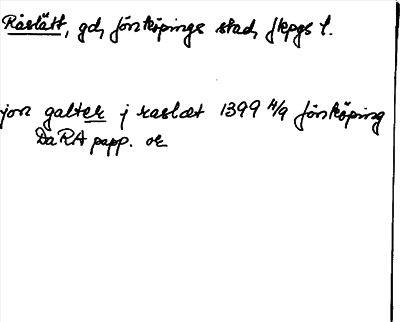 Råslätt, gd, Jönköpings stad, Jkpgs l.
jon galtek j raslæt 1399 4/9 Jönköping
DaRA papp. or